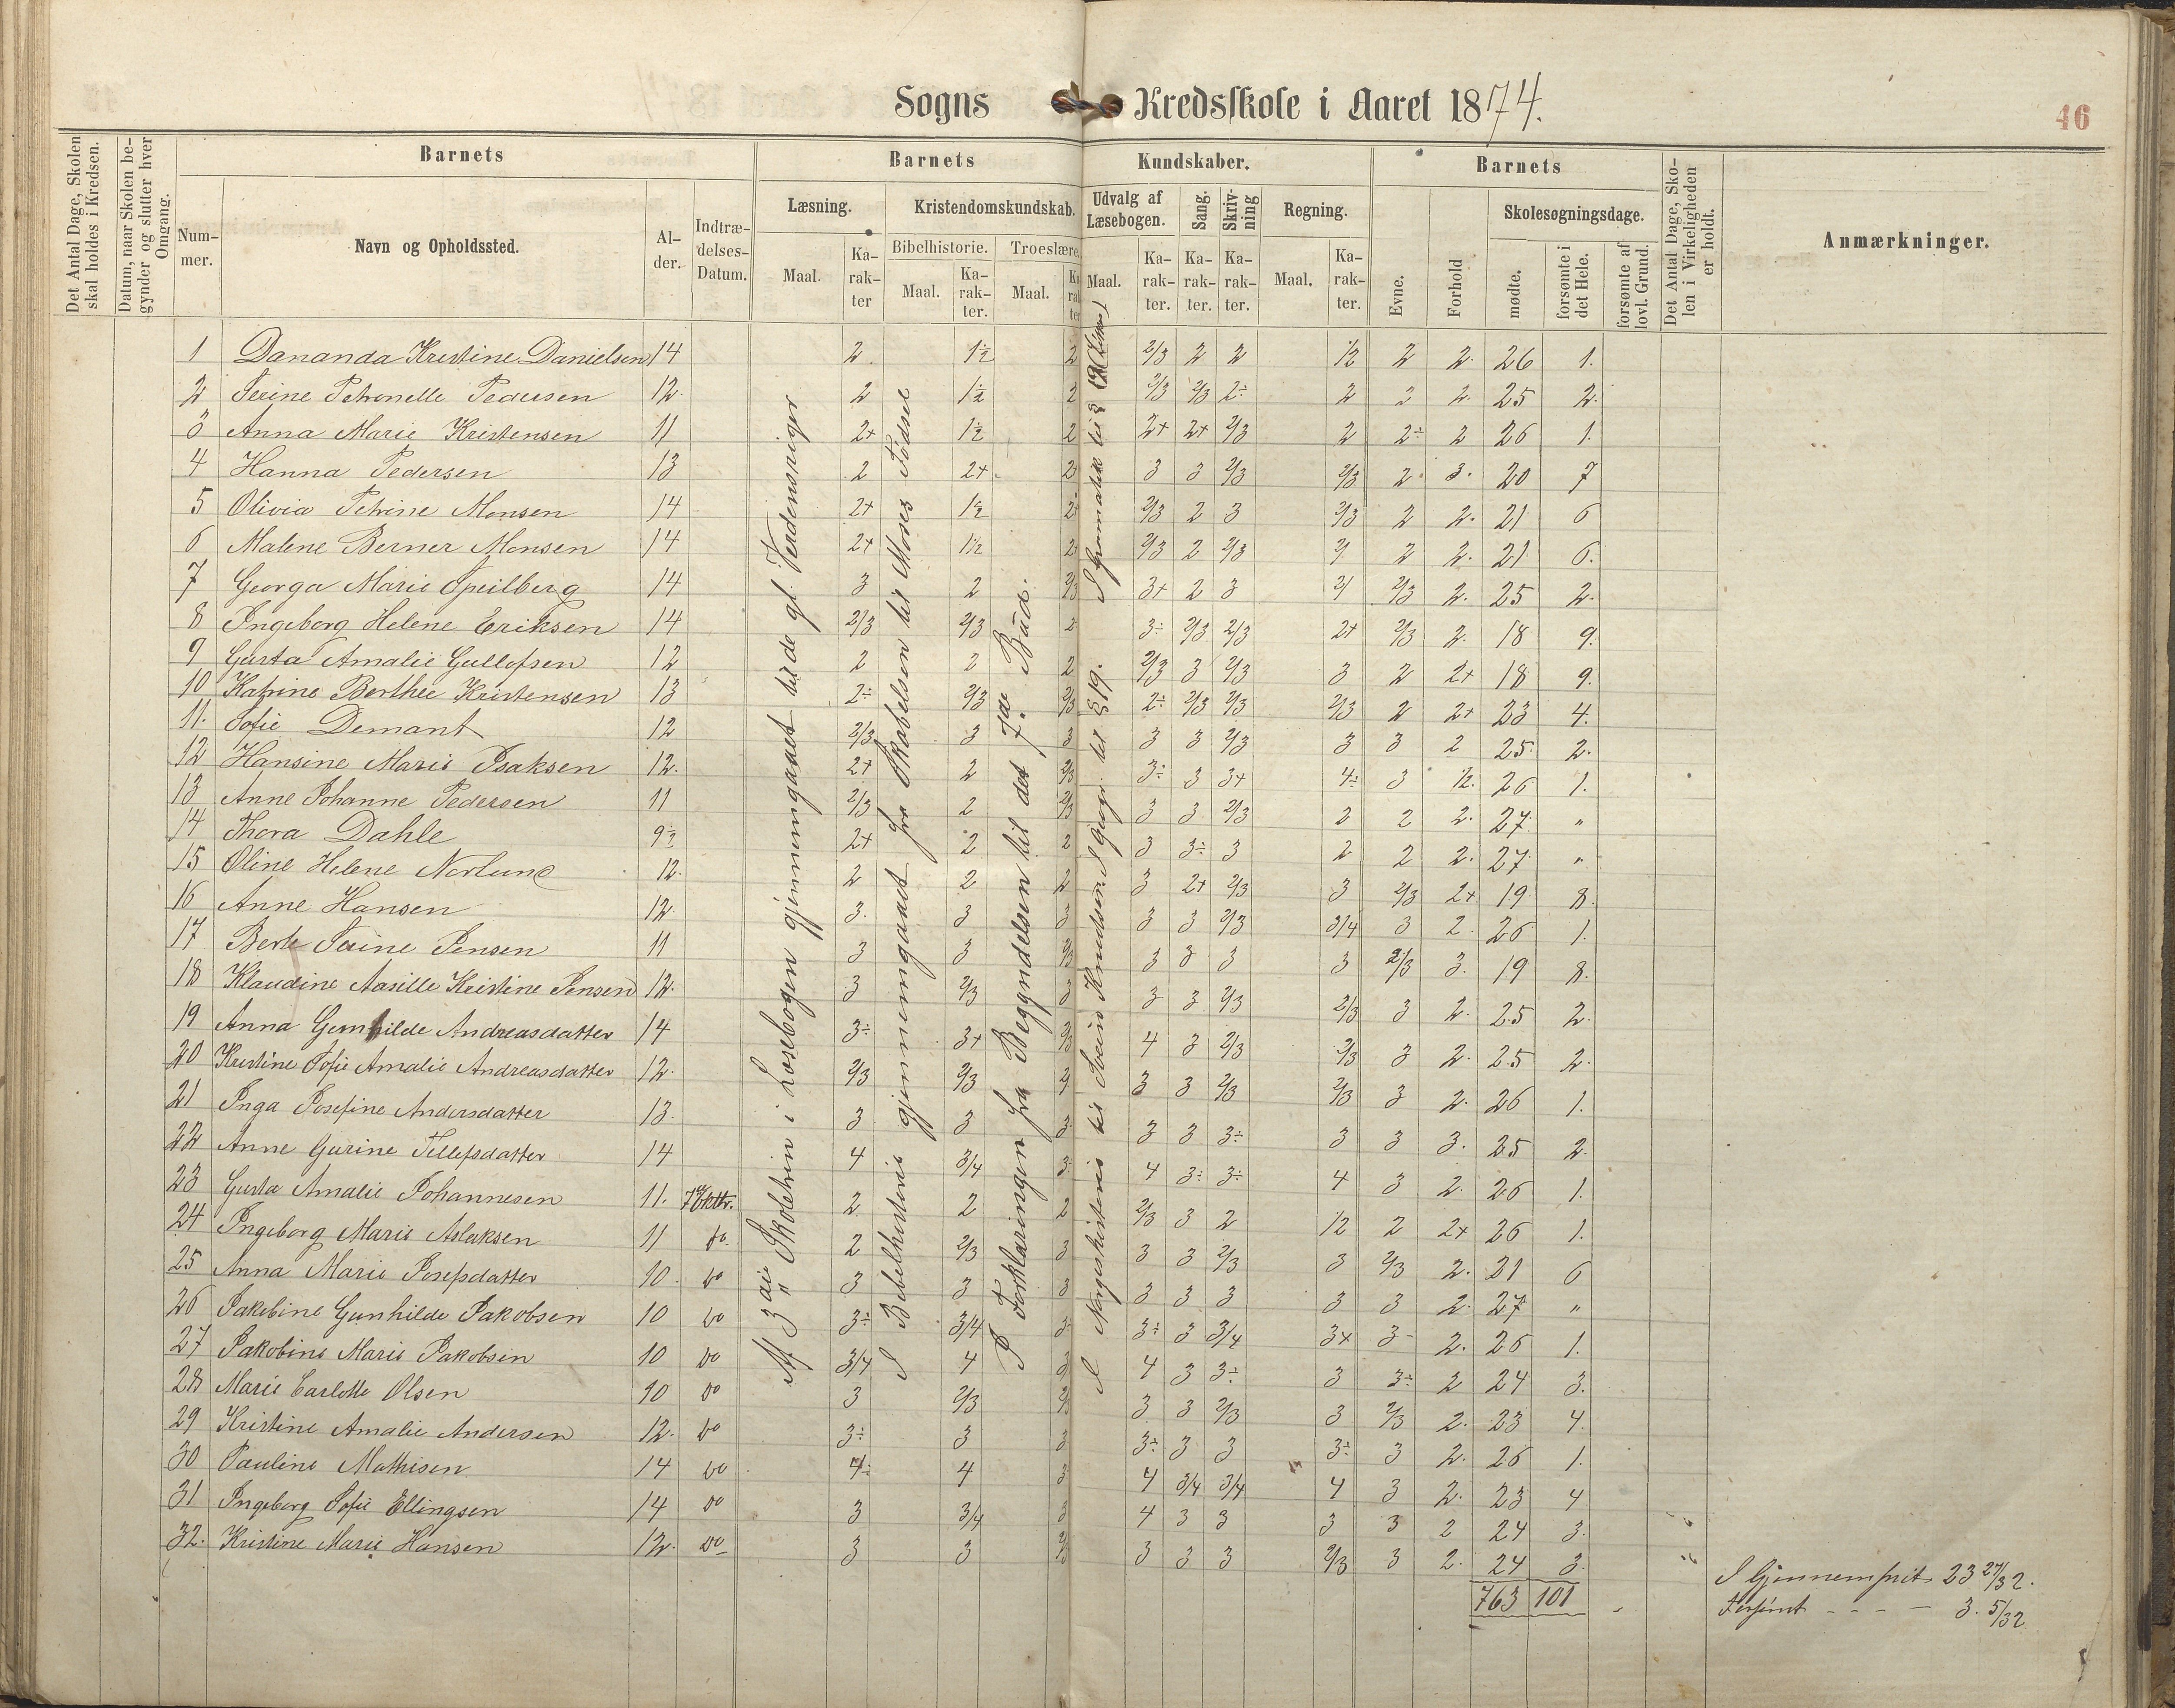 Sogns Kredsskole i Aaret 1874.
46
Det Antal Dage, Skolen skal holdes i Kredsen.
Datum, naar Skolen begynder og slutter hver Omgang.
Barnets
Barnets Kundskaber.
Barnets
Nummer.
Navn og Opholdssted.
Alder.
Indtrædelses-Datum.
Læsning.
Kristendomskundskab.
Bibelhistorie.
Troeslære.
Udvalg af Læsebogen.
Sang.
Skrivning
Regning.
Maal.
Karakter
Maal.
Karakter.
Maal.
Karakter
Maal.
Karakter.
Karakter.
Karakter.
Maal.
Karakter.
Evne.
Forhold
Skolesøgningsdage.
mødte.
forsømte i det Hele.
forsømte af lovl. Grund.
Det Antal Dage, Skolen i Virkeligheden er holdt.
Anmærkninger.
1 Dananda Kristine Danielsen 14 2 1½ 2 2/3 2 2 ½ 2 2. 26 1.
2 Serine Petronelle Pedersen 12. 2 1½ 2 2/3 2/3 2÷ 2 2 2. 25 2.
3 Anna Marie Kristensen 11 2+ 1½ 2 2+ 2+ 2/3 2 2÷ 2 26 1.
4 Hanna Pedersen 13 2 2+ 2 3 3 2/3 2/3 2 3. 20 7
5 Olivia Petrine Monsen 14 2+ 1½ 2+ 2/3 2 3 2/3 2 2. 21 6
6 Malene Berner Monsen 14 2+ 1½ 2 2/3 2 2/3 2 2. 21 6.
7 Georga Marie Speilberg 14 3 2 2/3 3+ 2 3 2/3 2. 25 2.
8 Ingeborg Helene Eriksen 14 2/3 2/3 2 3÷ 2/3 2/3 2+ 2/3 2. 18 9.
9 Gusta Amalie Gullofsen 12 2 2 2 2/3 3 2/3 3 2 2+ 18 9.
10 Katrine Berthee Kristensen 13 2÷ 2/3 2/3 2÷ 2/3 2/3 2/3 2 2+ 23 4.
11. Sofie Demant 12 2/3 3 3 3 3 2/3 3 3 2 25 2.
12 Hansine Marie Isaksen 12. 2+ 2 2/3 3÷ 3 3+ 4÷ 3 ½. 26 1.
13 Anne Johanne Pedersen 11 2/3 2 2/3 3 3 2/3 2 2 2. 27 "
14 Thora Dahle 9½ 2+ 2 2 3 3÷ 3 2 2 2. 27 "
15 Oline Helene Norlund 12. 2 2 2 3 2+ 2/3 3 2/3 2+ 19 8.
16 Anne Hansen 12. 3. 3 3 3 3 2/3 3/4 3 2. 26 1.
17 Berte Serine Jensen 11 3 3 2/3 3 3 3 3 2/3 3. 19 8.
18 Klaudine Aasille Kristine Jensen 12. 3 2/3 3 3 3 2/3 2/3 3 2. 25 2.
19 Anna Gunhilde Andreasdatter 14 3÷ 3+ 2/3 4 3 2/3 2/3 3 2. 25 2.
20 Kristine Sofie Amalie Andreasdatter 12. 2/3 2/3 3 3 2/3 2/3 3 2. 26 1.
21 Inga Josefine Andersdatter 13. 3 3 3 3 3 3÷ 3 3 3. 25 2.
22 Anne Gurine Tellefsdatter 14 4 3/4 3 4 3÷ 3÷ 4 3 2. 26 1.
23 Gusta Amalie Johannesen 11. 7 Oktbr. 2 2 2 2/3 3 2 ½ 2 2+ 26 1.
24 Ingeborg Marie Aslaksen 11 do. 2 2/3 3 3 3 2/3 3 2/3 2. 21 6
25 Anna Marie Josefsdatter 10. do 3 3 3 3 3 3 3 3 2. 27 "
26 Jakobine Gunhilde Jakobsen 10 do 3÷ 3/4 3÷ 3÷ 3 3/4 3+ 3÷ 2. 26 1.
27 Jakobine Marie Jakobsen 10 do 3/4 4 3 4 3 3÷ 3 3÷ 2 24 3.
28 Marie Carlotte Olsen 10 do 3 2/3 2/3 3 3 2/3 3 2/3 2. 23 4.
29 Kristine Amalie Andersen 12. do 3÷ 3 3 3÷ 3 3 3÷ 3 2. 26 1.
30 Pauline Mathisen 14 do 4÷ 4 3 4 3/4 3/4 4 3 2. 23 4
31 Ingeborg Sofie Ellingsen 14 do 3 3/4 3 4 3 3 3 3 2 24 3.
32. Kristine Marie Hansen 12. do 3 3 2/3 3 3 3 2/3 3 2. 24 3.
763 101
Af 3die Skoletrin i Læsebogen gjennemgaaet til de gl. Verdensriger
I Bibelhistorie gjennemgaaet fra Skabelsen til Moses Fødsel
I Forklaringen fra Begyndelsen til det 7de Bud.
I Norgeshistorie til Svein Knudsøn. I Geogr. til § 19. I Gramatik til §
I Gjennemsnit 23 27/32.
Forsømt - - - - 3. 5/32